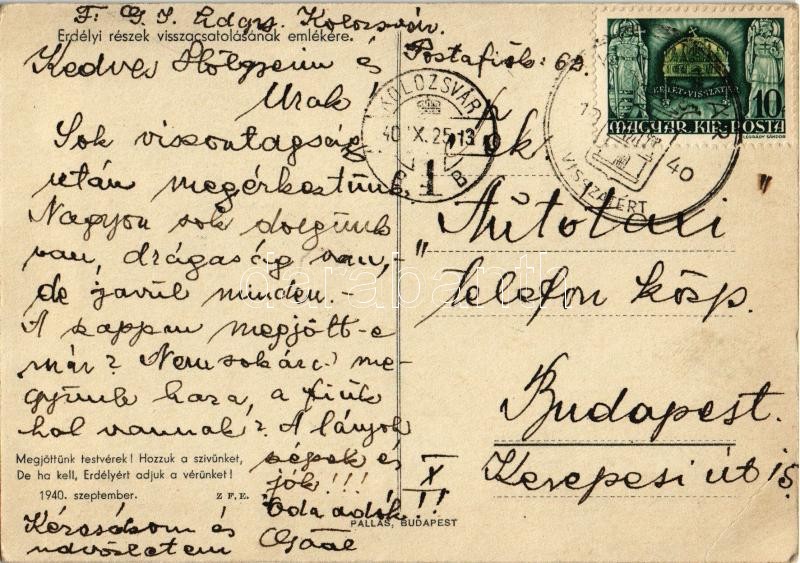 F: G. I. Ldgp. Kolozsvár.
Erdélyi részek visszacsatolásának emlékére.
Postafiók: 62.
Kedves Hölgyeim és
Urak!
Sok viszontagság
után megérkeztünk
Nagyon sok dolgunk
van, drágaság van,-
de javul minden.-
A szappan megjött-e
már? Nemsokára me-
gyünk haza, a fiúk
hol vannak? A lányok
szépek és
jók!!!
Oda adók!!
Kézcsókom és
üdvözletem Gaál
Megjöttünk testvérek! Hozzuk a szivünket,
De ha kell, Erdélyért adjuk a vérünket!
1940. szeptember. Z F. E.
PALLAS, BUDAPEST
KOLOZSVÁR
40 X. 25 13
1
B
VISSZATÉRT
40
KELET-VISSZATÉR
10f
MAGYAR KIR. POSTA
LÉGRÁDY SÁNDOR
"Autotaxi"
telefon közp.
Budapest.
X
Kerepesi út 15.
darabanth